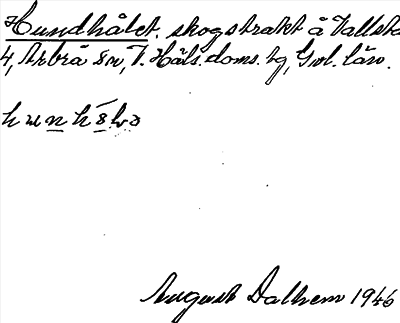 Hundhålet. skogstrakt å Vallsta
4, Arbrå sn, V. Häls. doms. tg, Gvl. län.
August Dalhem 1946